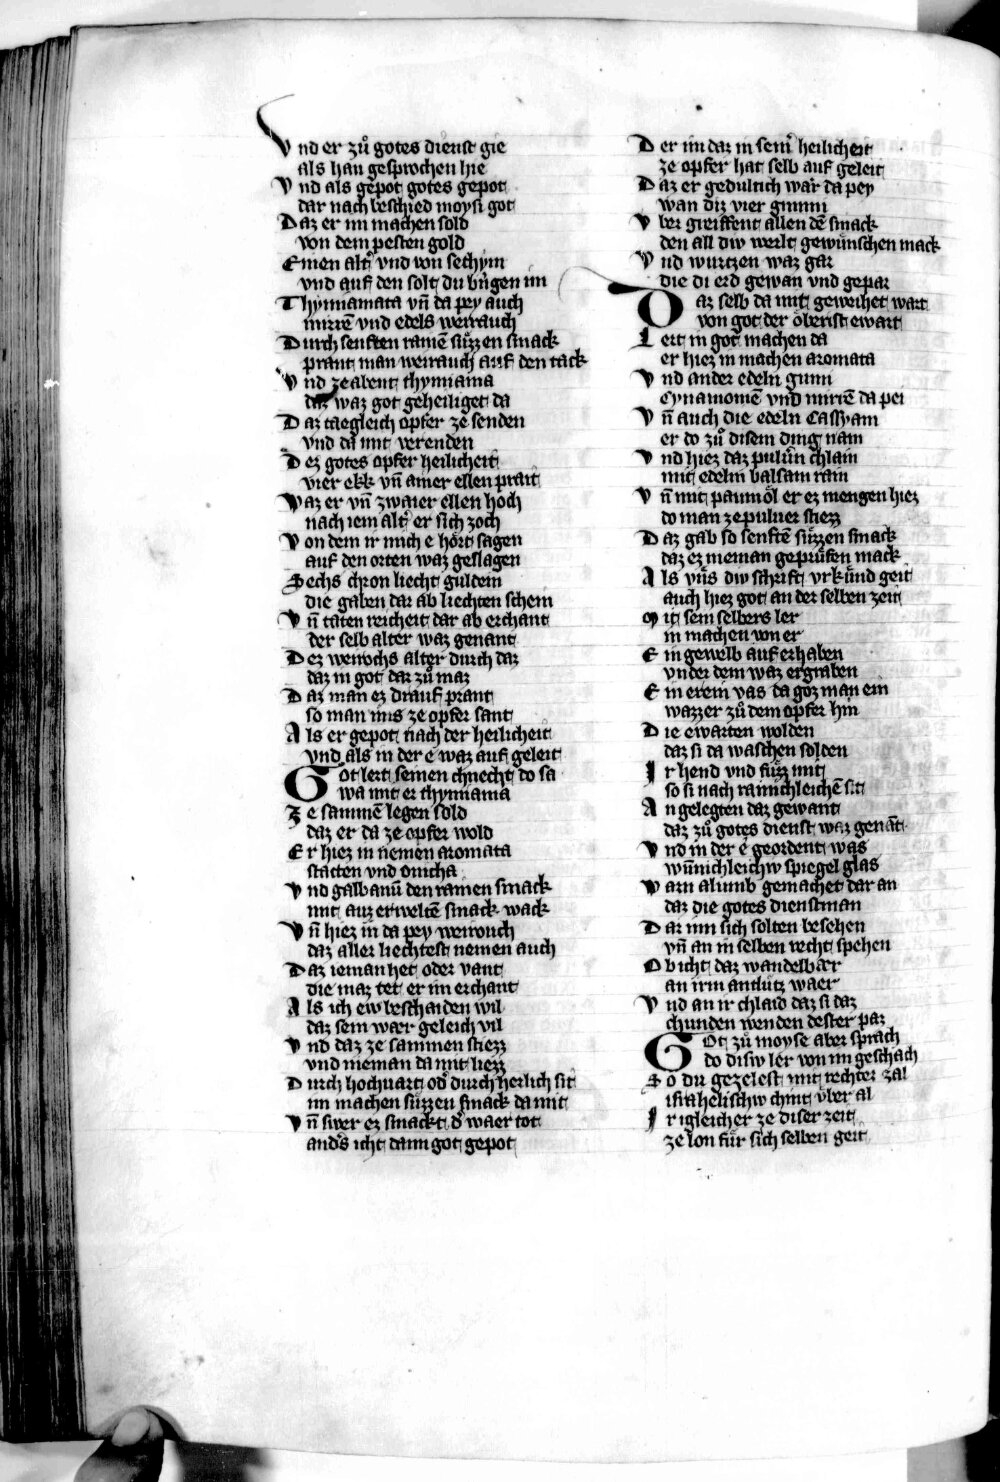 Vnd er zuͦ gotes dienst gie
als han gesprochen hie
Vnd als gepot gotes gepot
dar nach beschied moysi got
Daz er im machen sold
von dem pesten gold
Einen altˀ vnd von sethym
vnd auf den solt du bringen im
Thymiamata vn̄ da pey auch
mirrē vnd edels weirauch
Durch senften ramē suͤzzen smack
prant man weirauch auf den tack
Vnd ze abent thymiama
daz waz got geheiliget da
Daz taegleich opfer ze senden
vnd da mit verenden
Dez gotes opfer heilicheit
vier ekk vn̄ ainer ellen prait
Waz er vn̄ zwaier ellen hoch
nach iem altˀ er sich zoch
Von dem ir mich e hoͤrt sagen
auf den orten waz geslagen
Sechs chron liecht guldein
die gaben dar ab liechten schein
Vn̄ taten reicheit dar ab erchant
der selb alter waz genant
Dez weirochs alter durch daz
daz in got dar zuͦ maz
Daz man ez drauf prant
so man mis ze opfer sant
Als er gepot nach der heilicheit
vnd als in der e waz auf geleit
Got lert seinen chnecht do sa
wa mit er thymiama
Ze sammē legen sold
daz er da ze opfer wold
Er hiez in nemen aromata
stacten vnd onicha
Vnd galbanū den ramen smack
mit auz erweltē smack wack
Vn̄ hiez in da pey weirouch
daz aller liechtest nemen auch
Daz ieman het oder vant
die maz tet er im erchant
Als ich ew beschaiden wil
daz sein waer geleich vil
Vnd daz ze sammen stiezz
vnd nieman da mit liezz
Durch hochuart odˀ durch herlich sit
im machen suͤzzen smack da mit
Vn̄ swer ez smackt dˀ waer tot
andˀs icht dann got gepot
Der im daz in seinˀ heilicheit
ze opfer hat selb auf geleit
Daz er gedultich waͤr da pey
wan diz vier gummi
Vber greiffent allen dē smack
den all diw werlt gewuͤnschen mack
Vnd wurtzen waz gar
die di erd gewan vnd gepar
Daz selb da mit geweihet wart
von got der oͤberist ewart
Lert in got machen da
er hiez in machen aromata
Vnd ander edeln gumi
Cynamomē vnd mirrē da pei
Vn̄ auch die edeln Cassyam
er do zuͦ disem ding nam
Vnd hiez daz puluͤer chlain
mit edelm balsam rain
Vn̄ mit paumoͤl er ez mengen hiez
do man ze puluer stiezz
Daz gab so senftē suͤzzen smack
daz ez nieman gepruͤfen mack
Als vns diw schrift vrkuͤnd geit
auch hiez got an der selben zeit
Mit sein selbers ler
in machen von er
Ein gewelb auf erhaben
vnder dem waz ergraben
Ein erein vas da goz man ein
wazzer zuͦ dem opfer hin
Die ewarten wolden
daz si da waschen solden
Ir hend vnd fuͤzz mit
so si nach rainichleichē sit
Angelegten daz gewant
daz zuͦ gotes dienst waz genāt
Vnd in der e geordent was
wūnichleichiw spiegel glas
Warn alumb gemachet dar an
daz die gotes dienstman
Dar inn sich solten besehen
vn̄ an in selben recht spehen
Ob icht daz wandelbaer
an irm antlutz waer
Vnd an ir chlaid daz si daz
chunden wenden dester paz
Got zuͦ moyse aber sprach
do disiw ler von im geschach
So du gezelest mit rechter zal
israhelischiw chint uͤber al
Ir igleicher ze diser zeit
ze lon fuͤr sich selben geit